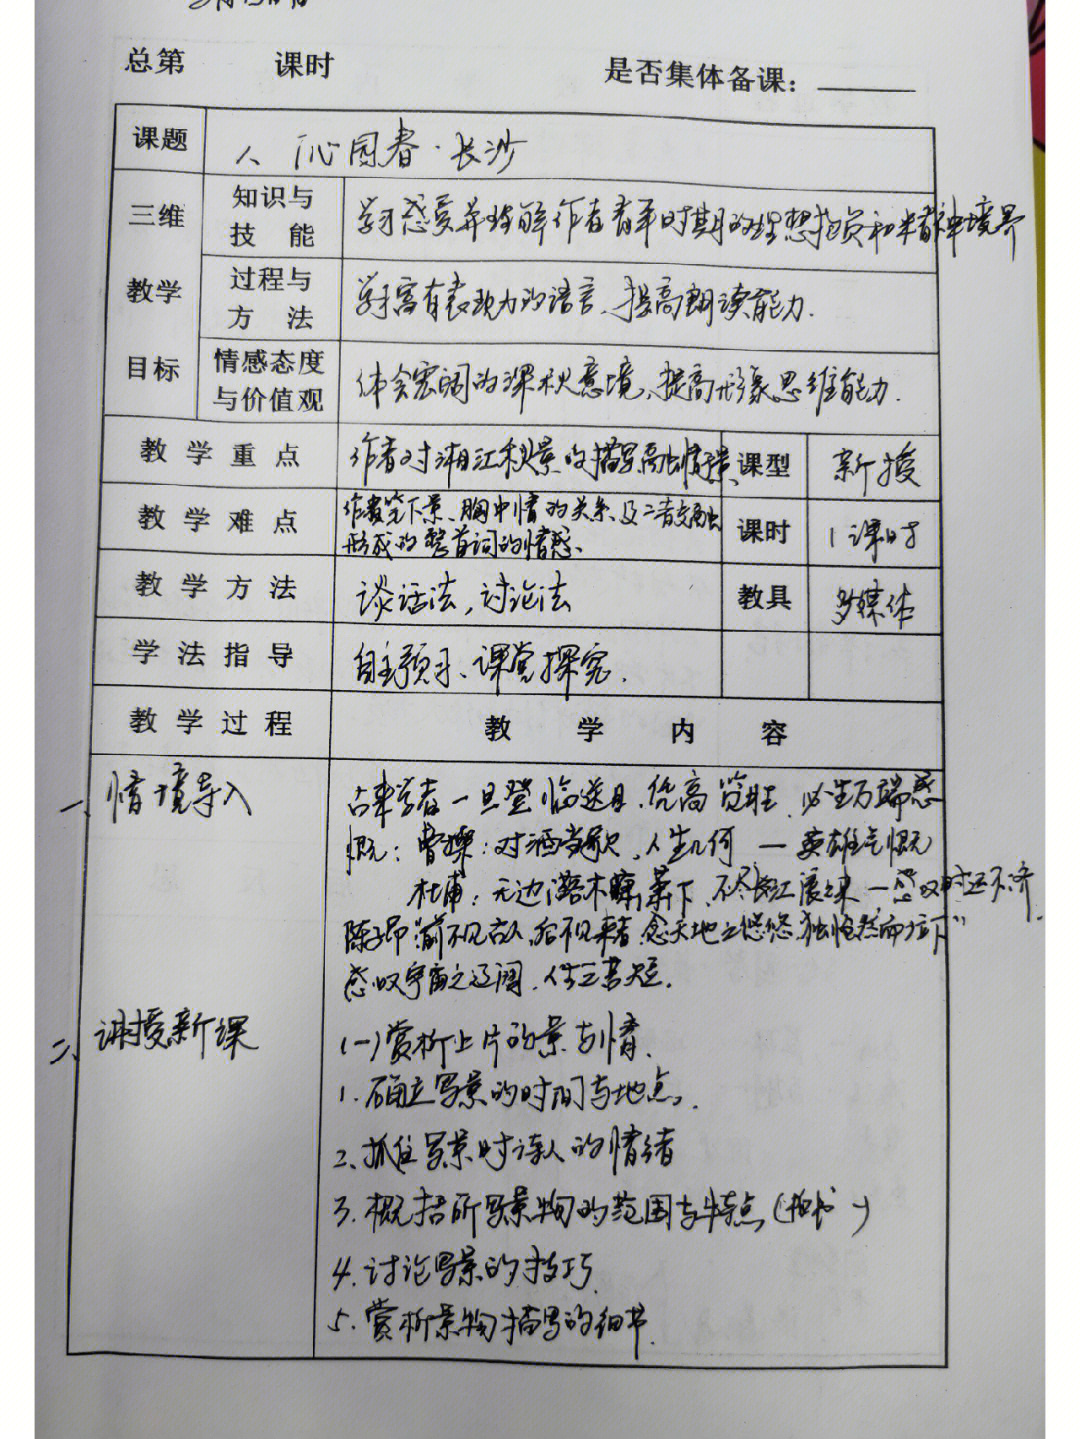 总第 课时 是否集体备课：
课题 1、沁园春·长沙
三维教学目标
知识与技能 学习感受并理解作者青年时期的理想抱负和精神境界
过程与方法 学习富有表现力的语言、提高朗读能力.
情感态度与价值观 体会宏阔的深秋意境、提高形象思维能力.
教学重点 作者对湘江秋景的描写 情景 课型 新授
教学难点 作者笔下景、胸中情的关系及二者交融 课时 1课时
形成的整首词的情感、
教学方法 谈话法，讨论法 教具 多媒体
学法指导 自主预习、课堂探究.
教学过程 教学内容
一、情境导入
古来学者一旦登临送目，览胜，必生万端感
慨：曹操：对酒当歌，人生几何 — 英雄气慨
杜甫：无边落木萧萧下，不尽长江滚滚来 — 感叹时运不济.
陈子昂“前不见古人，后不见来者 念天地之悠悠 独怆然而涕下”
感叹宇宙之辽阔，人生之苦短.
二、讲授新课
(一)赏析上片的景与情.
1.确立写景的时间与地点.
2、抓住写景时诗人的情绪
3.概括所写景物的范围与特点(板书)
4.讨论写景的技巧.
5.赏析景物描写的细节.